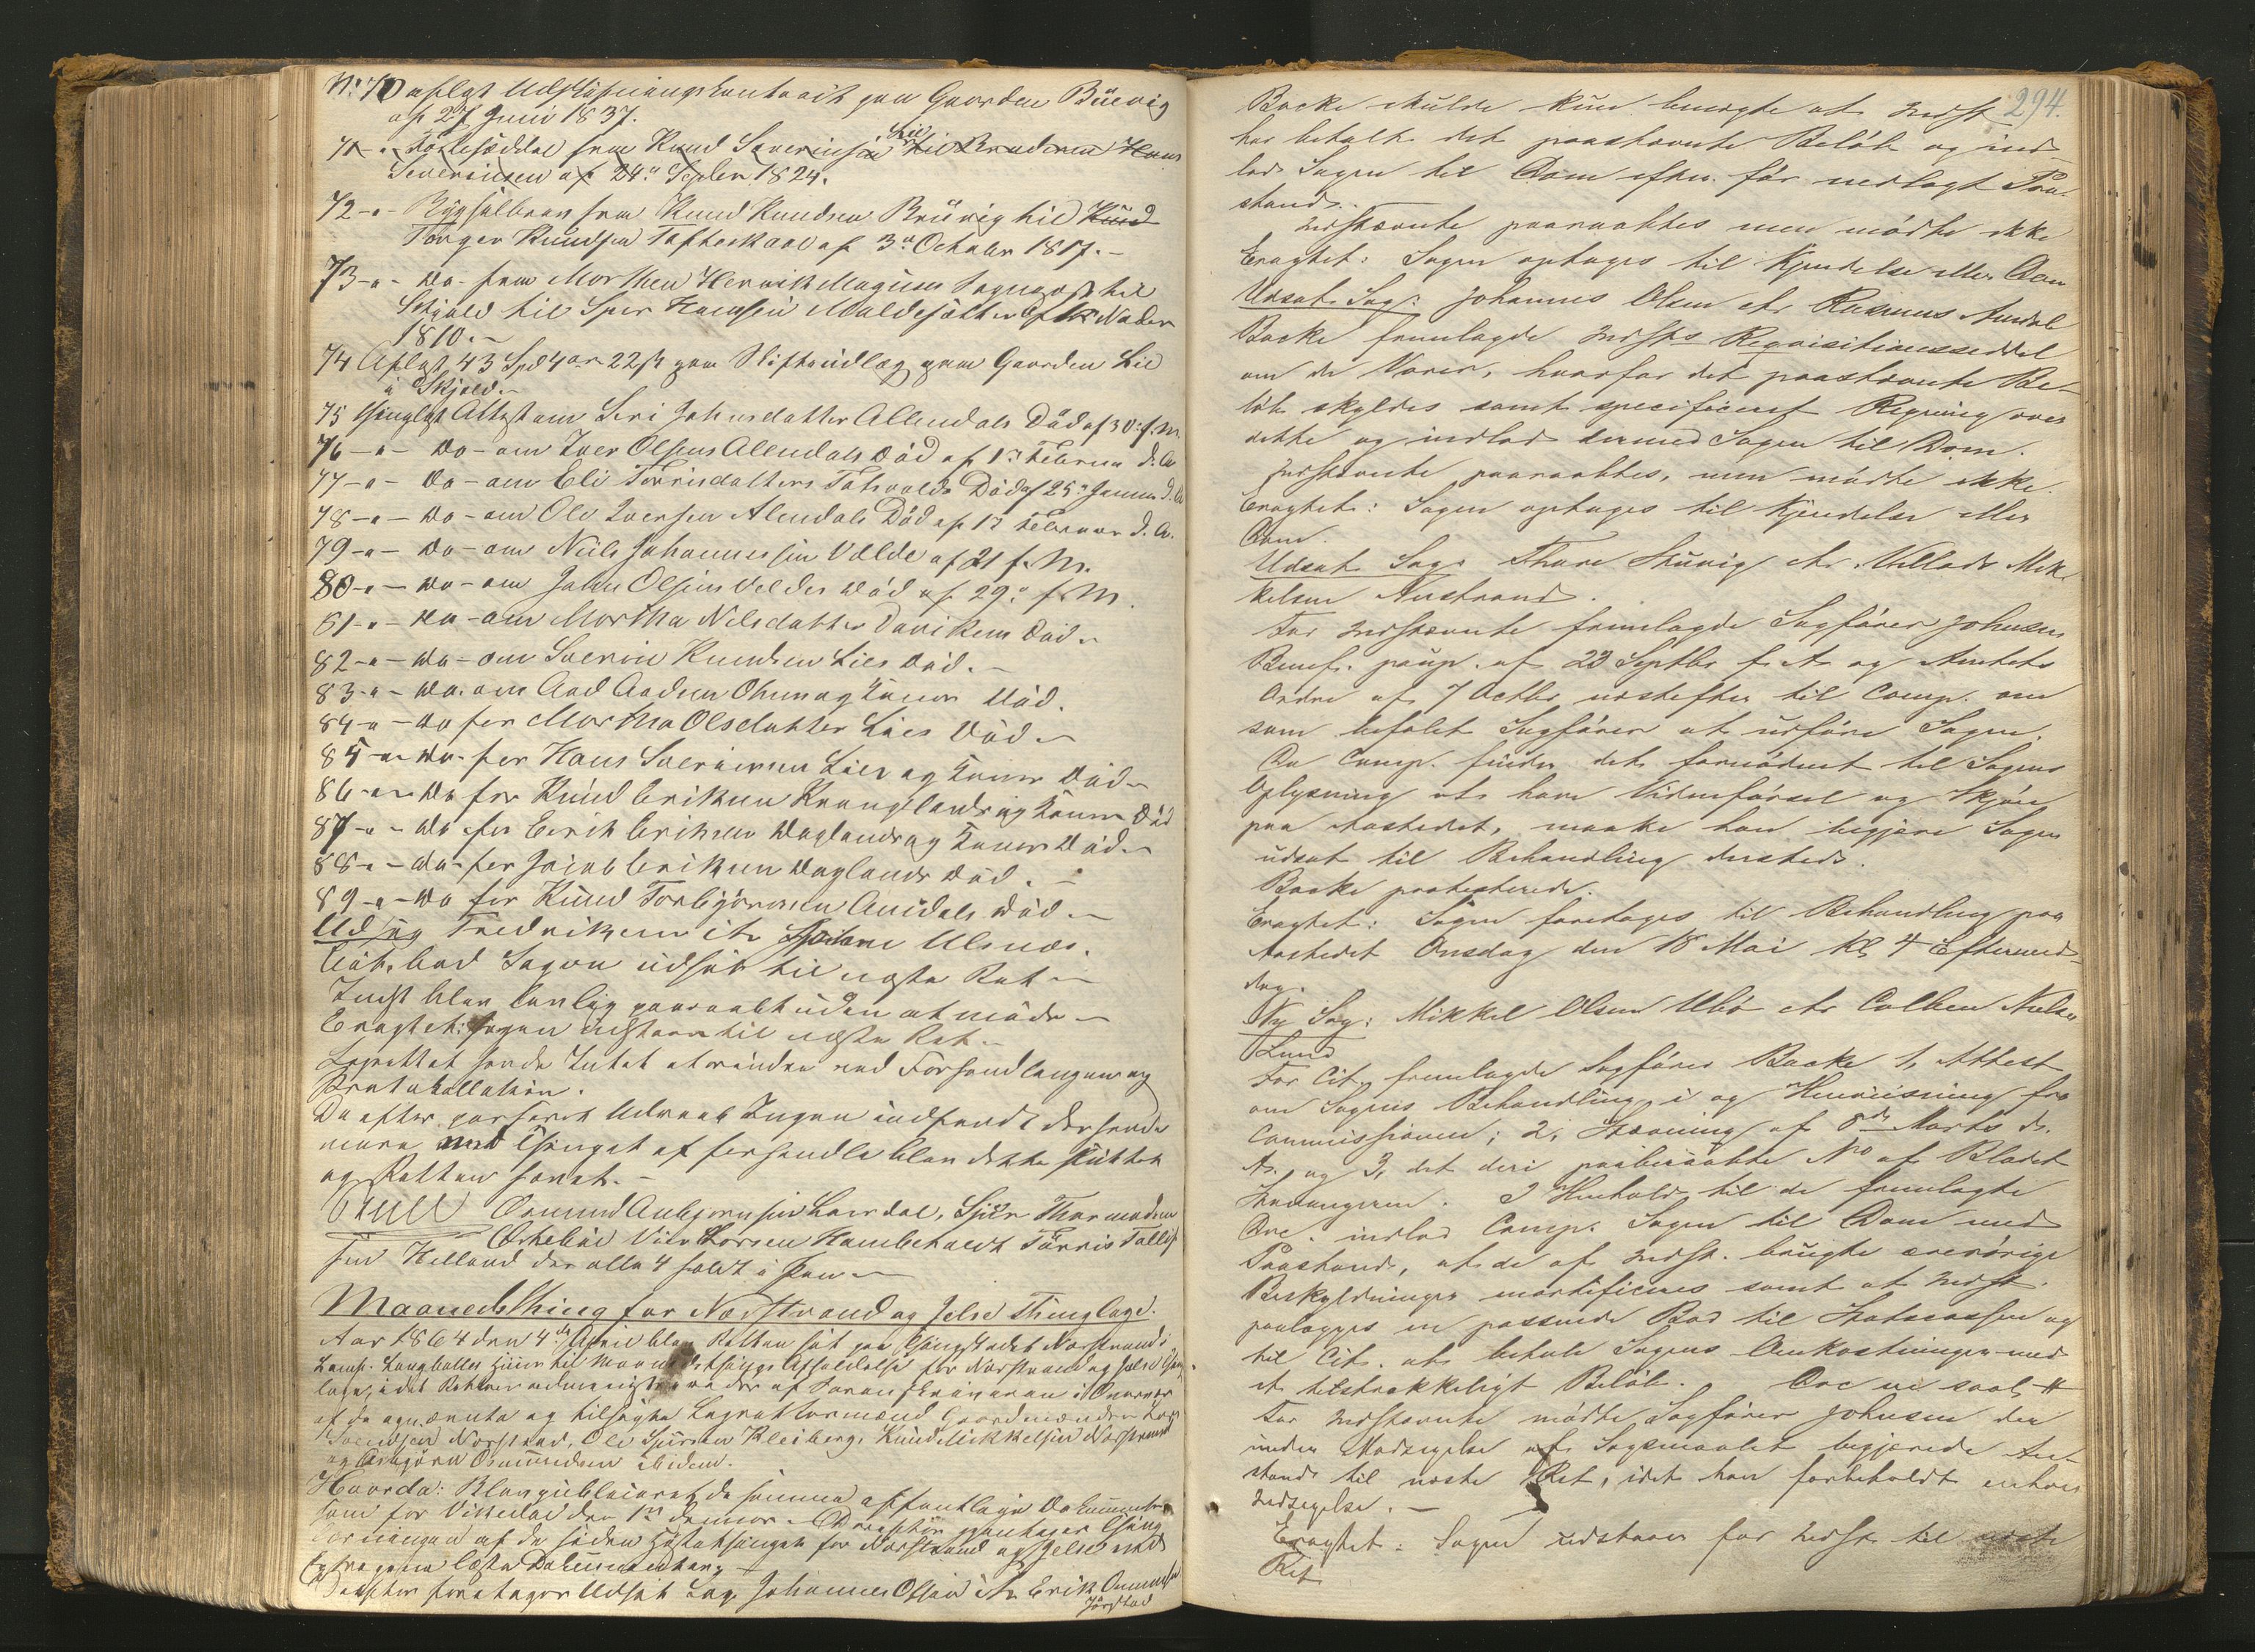 No 70 aflyst Udskiftningskontract paa Gaarden Buevig
af 27 Juni 1837.
71 - " - Fästesäddel fra Knud Severinsen Lie til Broderen Hans
Severinsen af 24de Septbr 1824.
72 - " - Bygselbrev fra Knud Knudsen Bruvig til Knud
Torger Knudsen Tafteskaal af 3de October 1817. -
73 - " - Do - fra Morthen Henrik Magnus Sogneprest til
Skjold til Hansen af Novbr
1810. -
74 Aflyst 43 Spd 4 ort 22 s paa Skifteudlæg paa Gaarden Lie
i Skjold. -
75 Thinglyst Attest om Siri Johnsdatter Allendals Död af 30 f. M.
76 - " - Do - om Iver Olsens Allendals Död af 13 Februar d. A.
77 - " - Do - om Eli Torrisdatters Död af 25de Januar d. A.
78 - " - Do - om Ole Iversen Alendals Död af 13 Februar d. A.
79 - " - Do - om Niels Johannessen Vælde af 21 f. M.
80 - " - Do - om John Olsens Veldes Död af 29de f. M.
81 - " - Do - om Martha Nilsdatter Död -
82 - " - Do - om Soerin Knudsen Lies Död. -
83 - " - Do. om Aad Aadsen Ohm og Kones Död.
84 - " - Do for Martha Olsdatter Lies Död -
85 - " - Do - for Hans Soerinsen Lies og Kones Död -
86 - " - Do for Knud Eriksen Kronglands og Kones Död
87 - " - Do for Eirik Eriksen Daglands og Kones Död -
88 - " - Do - for Jacob Eriksen Daglands Död. -
89 - " - Do for Knud Torbjörnsen Amdals Död. -
Udsag Fredriksen ctr Ulsnæs.
Cit. bad Sagen udsat til næste Ret -
Indst blev lovlig paaraabt uden at møde -
Eragtet: Sagen udstaar til næste Ret. -
Lagrettet havde Intet at erindre ved Forhandlingen og
Protokollation.
Da efter passeret Udraab Ingen indfandt der havde
mere ved Thinget at forhandle blev dette sluttet
og Retten hævet. -
Stull Osmund Asbjörnsen Lærdal, Sjur Thormodsen
Lorsen Törris Tallif
sen Helland der alle 4 holdt i Pen -
Maanedsthing for Nærstrand og Jelse Thinglage.
Aar 1864 den 4de April blev Retten sat paa Thingstedet Nærstrands
Lensm. Hiim til Maanedsthings Afholdelse for Nærstrand og Jelse Thing
lage, idet Retten administreredes af Sorenskriveren i Overvær
af de opnævnte og tilsagte Lagrettesmænd, Gaardmændene Lars
Svendsen Nærstrand, Ole Sjursen Kleiberg, Knud Mikkelsen Nærstrand
og Asbjörn Osmundsen ibidem.
Hvorda: Blev publiceret de samme offentlige Documenter
som for Vikedal den 1ste dennes. Derefter foretoges Thing
lysningen af de siden Höstethinget for Nærstrand og Jelse med
Extragene læste Documenter -
Derefter foretoges Udsat Sag: Johannes Olsen ctr Erik Omundsen
Jörstad
294.
Backe skulde kun benægte at Indst
har betalt det paastævnte Belöb og ind-
lod Sagen til Dom efter för nedlagt Paa-
stand.
Indstævnte paaraabtes men mödte ikke
Eragtet: Sagen optages til Kjendelse eller Dom
Udsat Sag: Johannes Olsen ctr Rasmus Amdal
Backe fremlagde Indsts Requisitionsseddel
om de Varer, hvorfor det paastævnte Be-
löb skyldes samt specificeret Regning over
dette og indlod dermed Sagen til Dom.
Indstævnte paaraabtes, men mödte ikke.
Eragtet: Sagen optages til Kjendelse eller
Dom.
Udsat Sag: Thore Stuvig ctr. Villads Mik-
kelsen Nærstrand.
For Indstævnte fremlagde Sagförer Johnsen
Benef. paup. af 23 Septbr f. A. og Amtets
Ordre af 7 Octbr næstefter til Comp. om
som befalet Sagförer at udföre Sagen.
Da Comp. finder det fornödent til Sagens
Oplysning at have Vidneförsel og Skjön
paa Aastedet, maatte han begjære Sagen
udsat til Behandling dersteds.
Backe protesterede.
Eragtet: Sagen foretages til Behandling paa
Aastedet Onsdag den 18 Mai Kl 4 Eftermid-
dag.
Ny Sag: Mikkel Olsen Ulbö ctr Colben Nielsen
Lund
For Cit. fremlagde Sagförer Backe 1, Attest
om Sagens Behandling i og Henvisning fra
Commissionen; 2, Stævning af 8de Marts d.
A. og 3, det deri paaberaabte No af Bladet
Stavangeren. I Henhold til de fremlagte
Doc. indlod Comp. Sagen til Dom med
Paastand, at de af Indst. brugte ærerörige
Beskyldninger mortificeres samt at Indst.
paalægges en passende Bod til Statscassen og
til Cit. at betale Sagens Omkostninger med
et tilstrækkeligt Belöb. Doc ne saal. #
For Indstævnte mödte Sagförer Johnsen der
under Modsigelse af Sagsmaalet begjærede An-
stand til næste Ret, idet han forbeholdt enhver
Indsigelse. -
Eragtet: Sagen udstaar for Indst. til næste
Ret